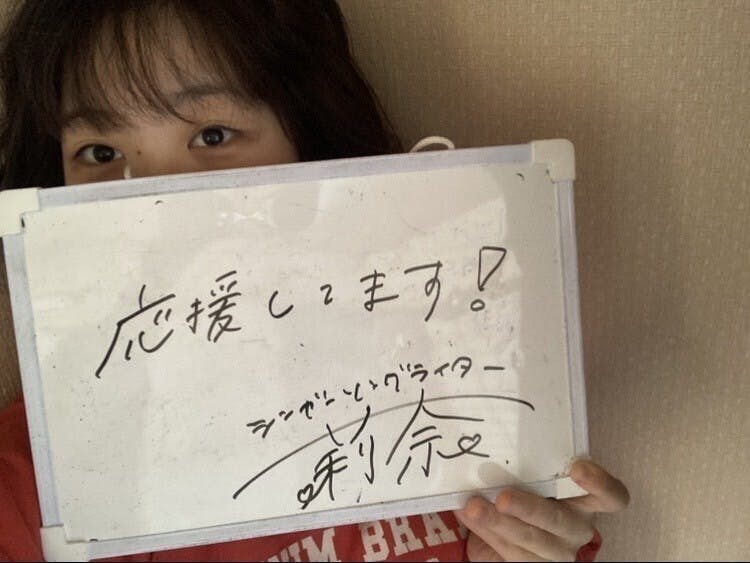 応援してます!
シンガーソングライター
莉奈
UM BRA